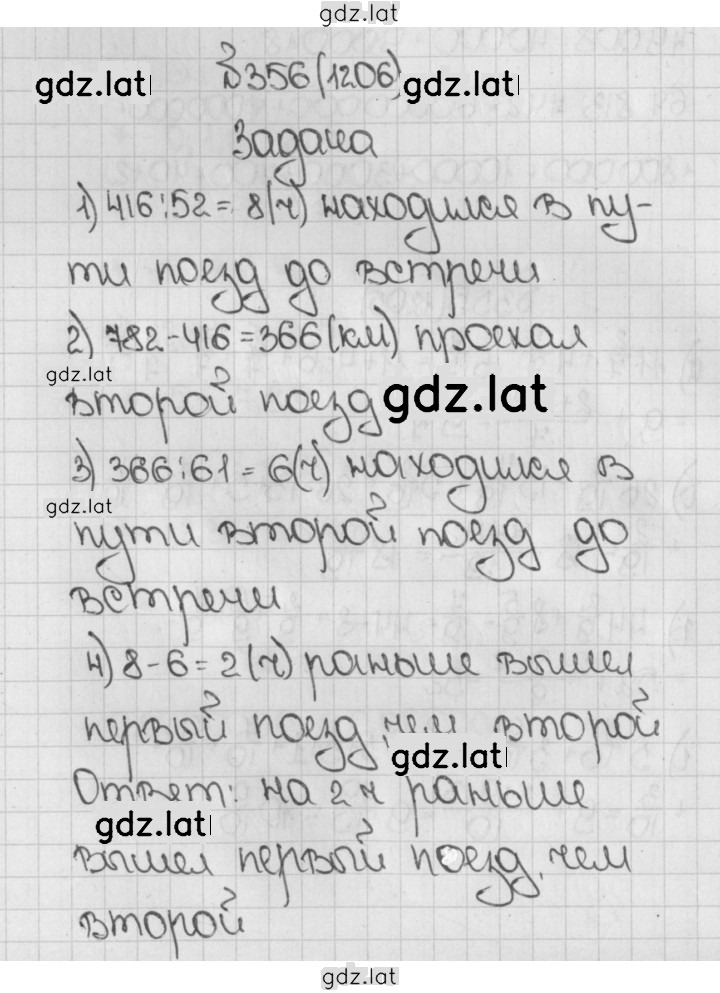 gdz.lat
№356(1206)
gdz.lat
Задача
1) 416:52= 8(ч) находился в пу-
ти поезд до встречи
2) 782-416=366(км) проехал
gdz.lat
второй поезд gdz.lat
3) 366:61=6(ч) находился в
gdz.lat
пути второй поезд до
встречи
4) 8-6=2(ч) раньше вышел
gdz.lat
первый поезд, чем второй
gdz.lat
Ответ: на 2 ч раньше
gdz.lat
вышел первый поезд, чем
второй
gdz.lat